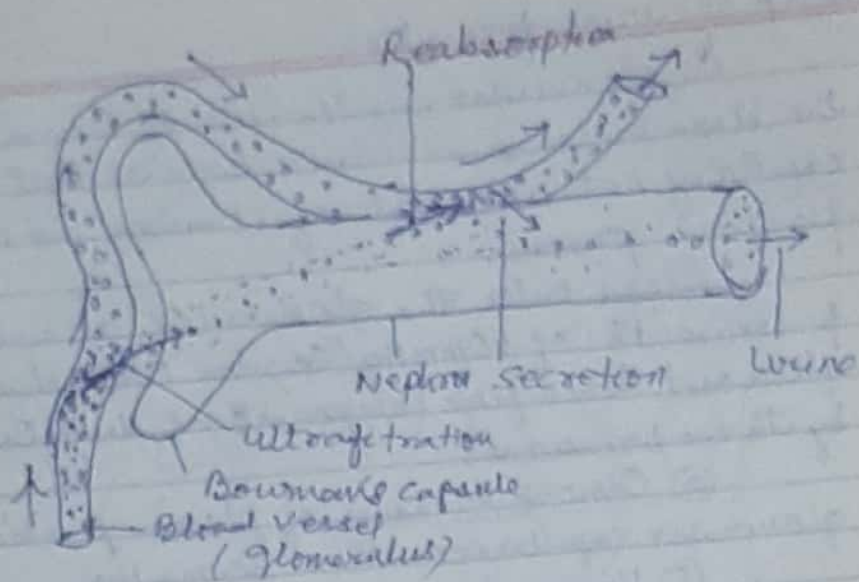 Reabsorption
Nephron secretion
Urine
Ultrafiltration
Bowman's capsule
Blood vessel
(Glomerulus)